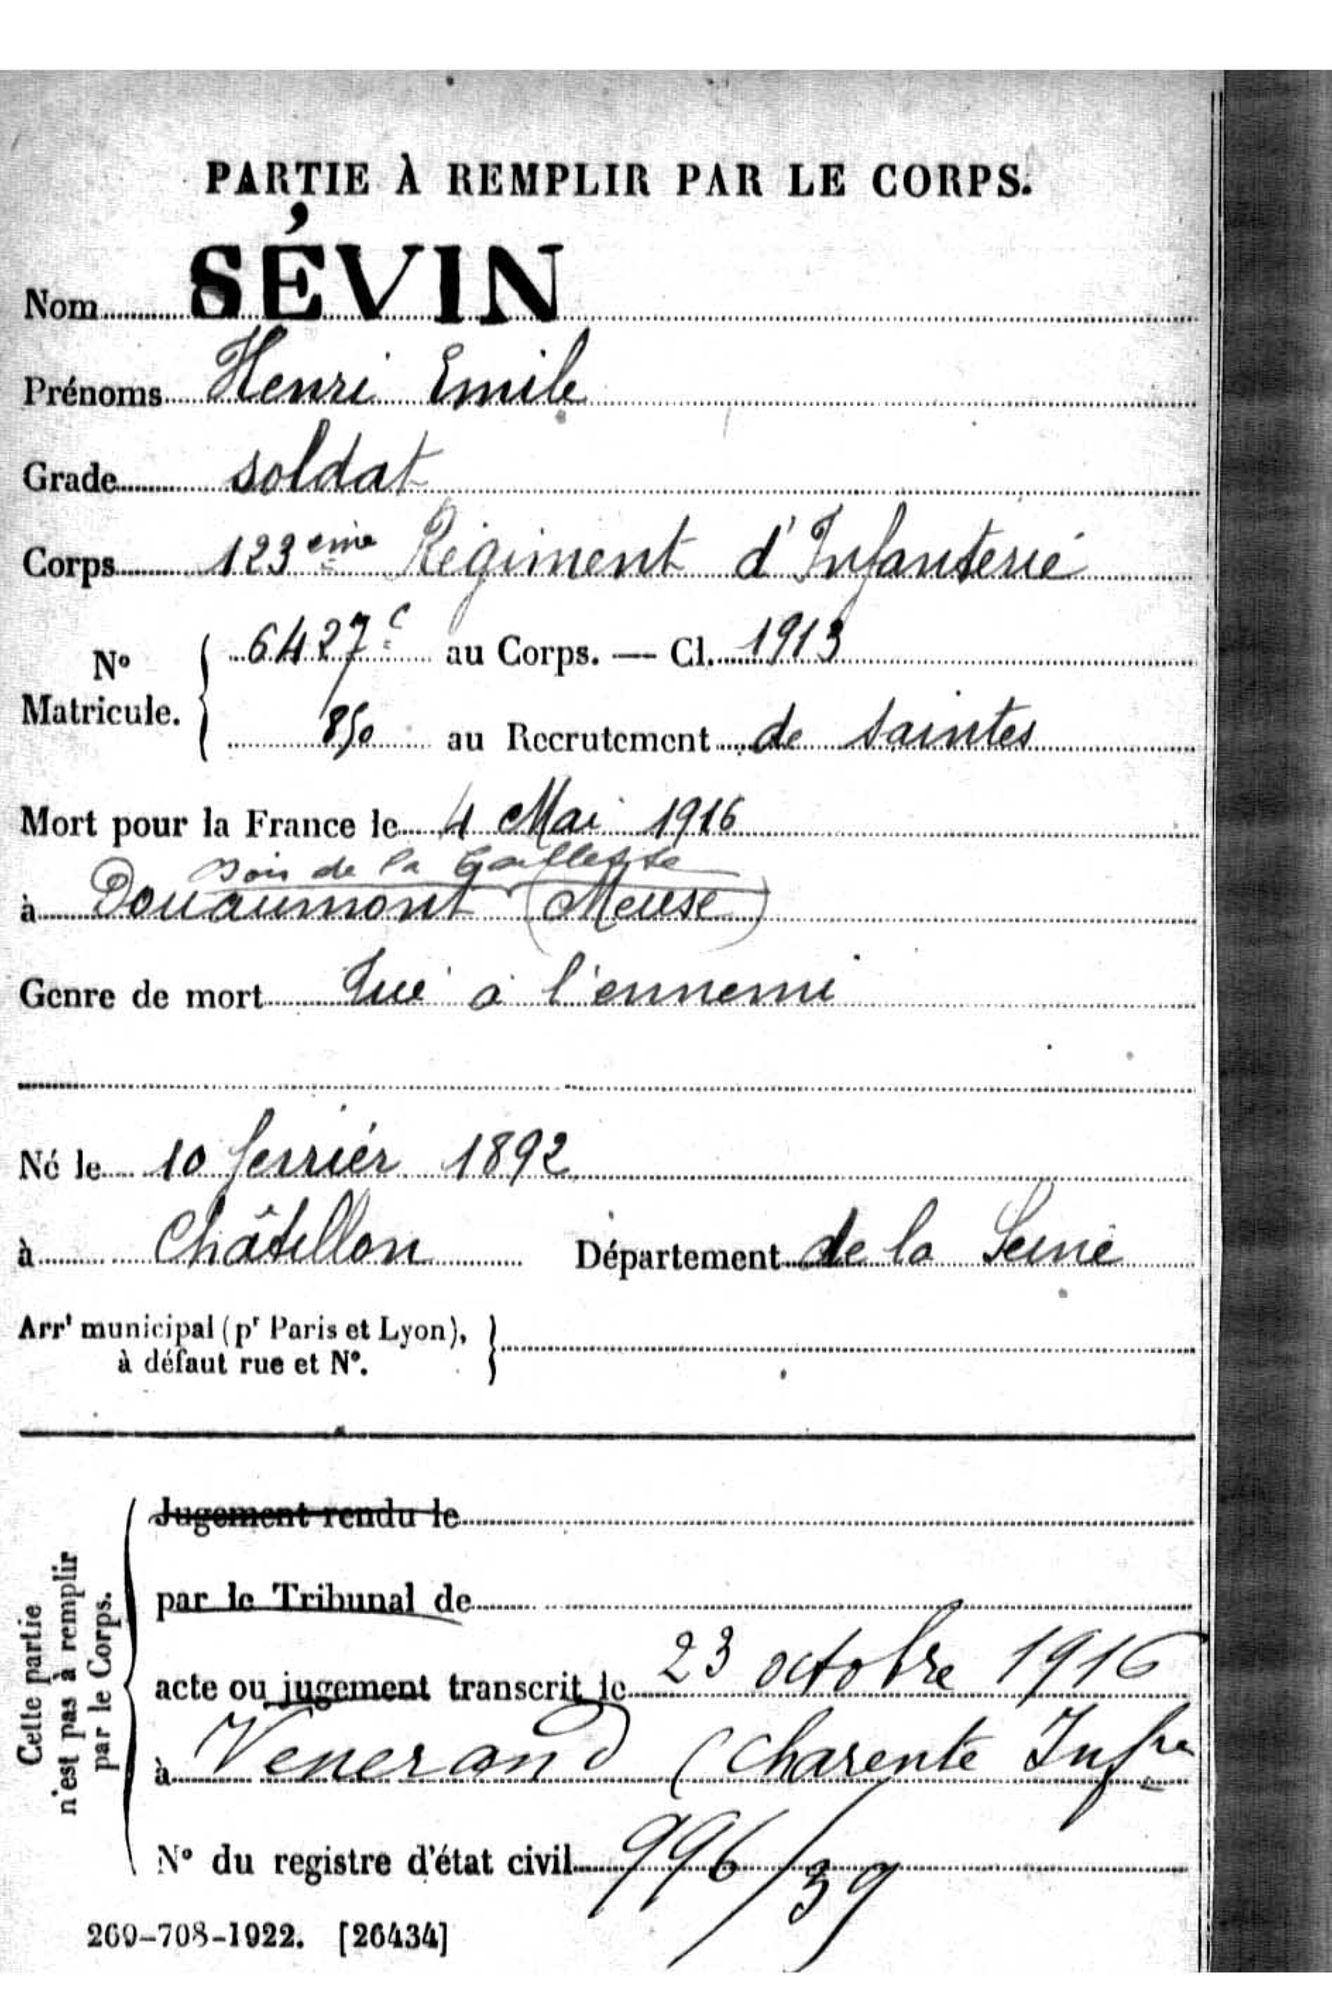 PARTIE À REMPLIR PAR LE CORPS.
Nom SÉVIN
Prénoms Henri Emile
Grade soldat
Corps 123eme Régiment d'Infanterie
N° Matricule. 6427 c au Corps. — Cl. 1913
850 au Recrutement de Saintes
Mort pour la France le 4 Mai 1916
bois de la Caillette
à Douaumont (Meuse)
Genre de mort Tué à l'ennemi
Né le 10 fevrier 1892
à Châtillon Département de la Seine
Arrt municipal (pr Paris et Lyon),
à défaut rue et N°.
Cette partie
n'est pas à remplir
par le Corps.
Jugement rendu le
par le Tribunal de
acte ou jugement transcrit le 23 octobre 1916
à Venerand (Charente Infre
N° du registre d'état civil 996/39
269-708-1922. [26434]